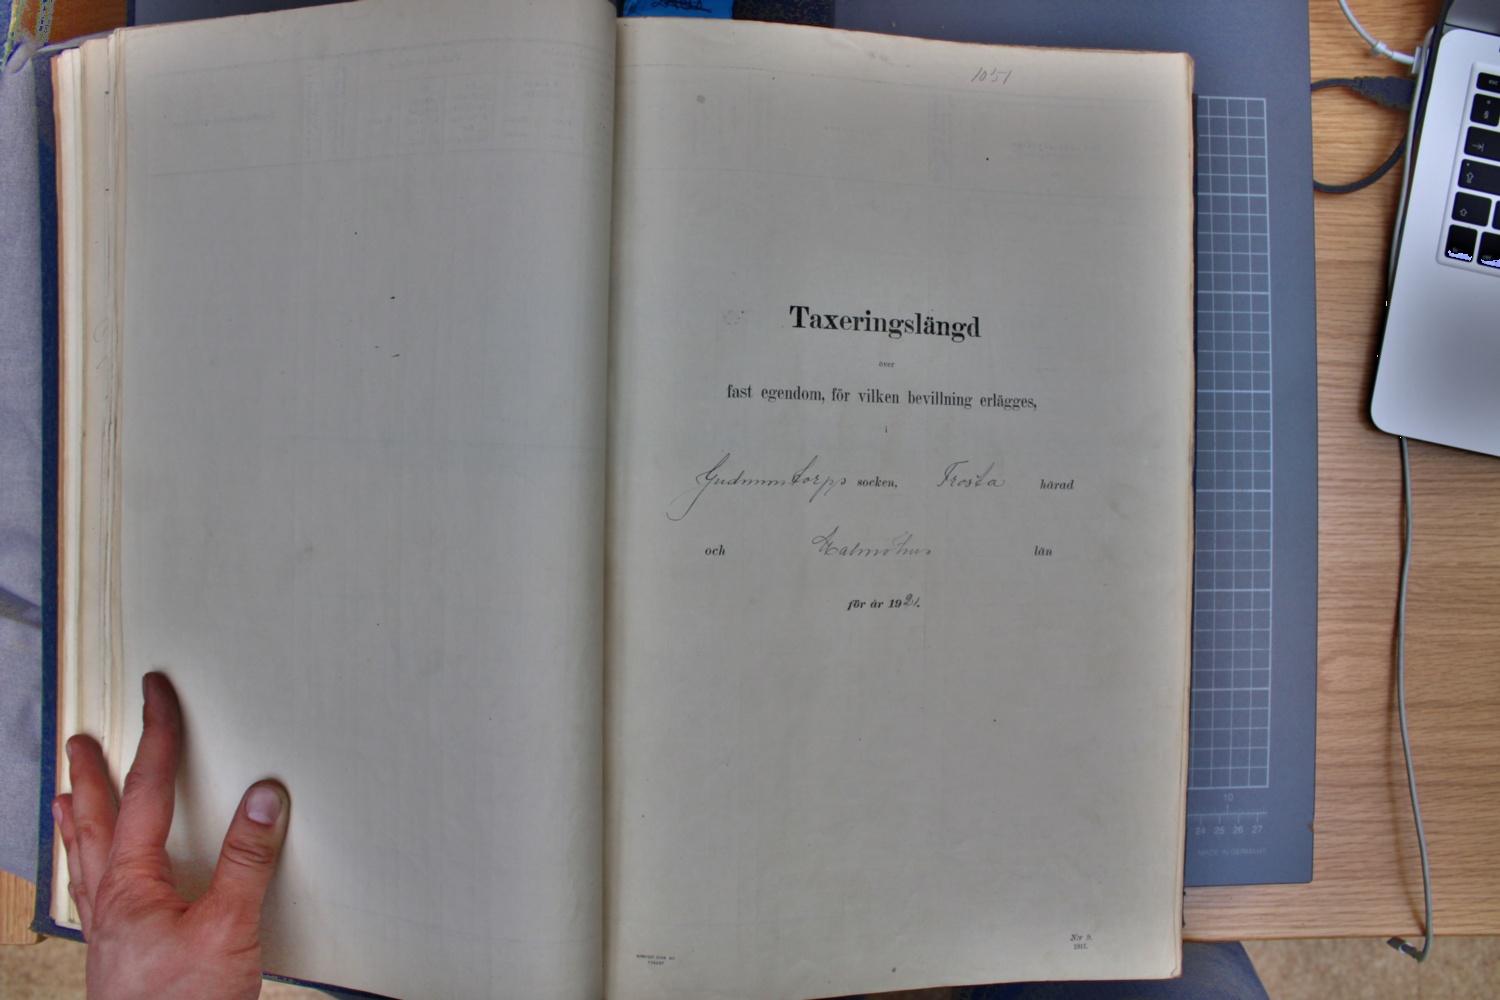 1051
Taxeringslängd
över
fast egendom, för vilken bevillning erlägges,
i
Gudmuntorps socken, Frosta härad
och Malmöhus län
för år 1921.
N:r 9.
10
24 25 26 27
MADE IN GERMANY